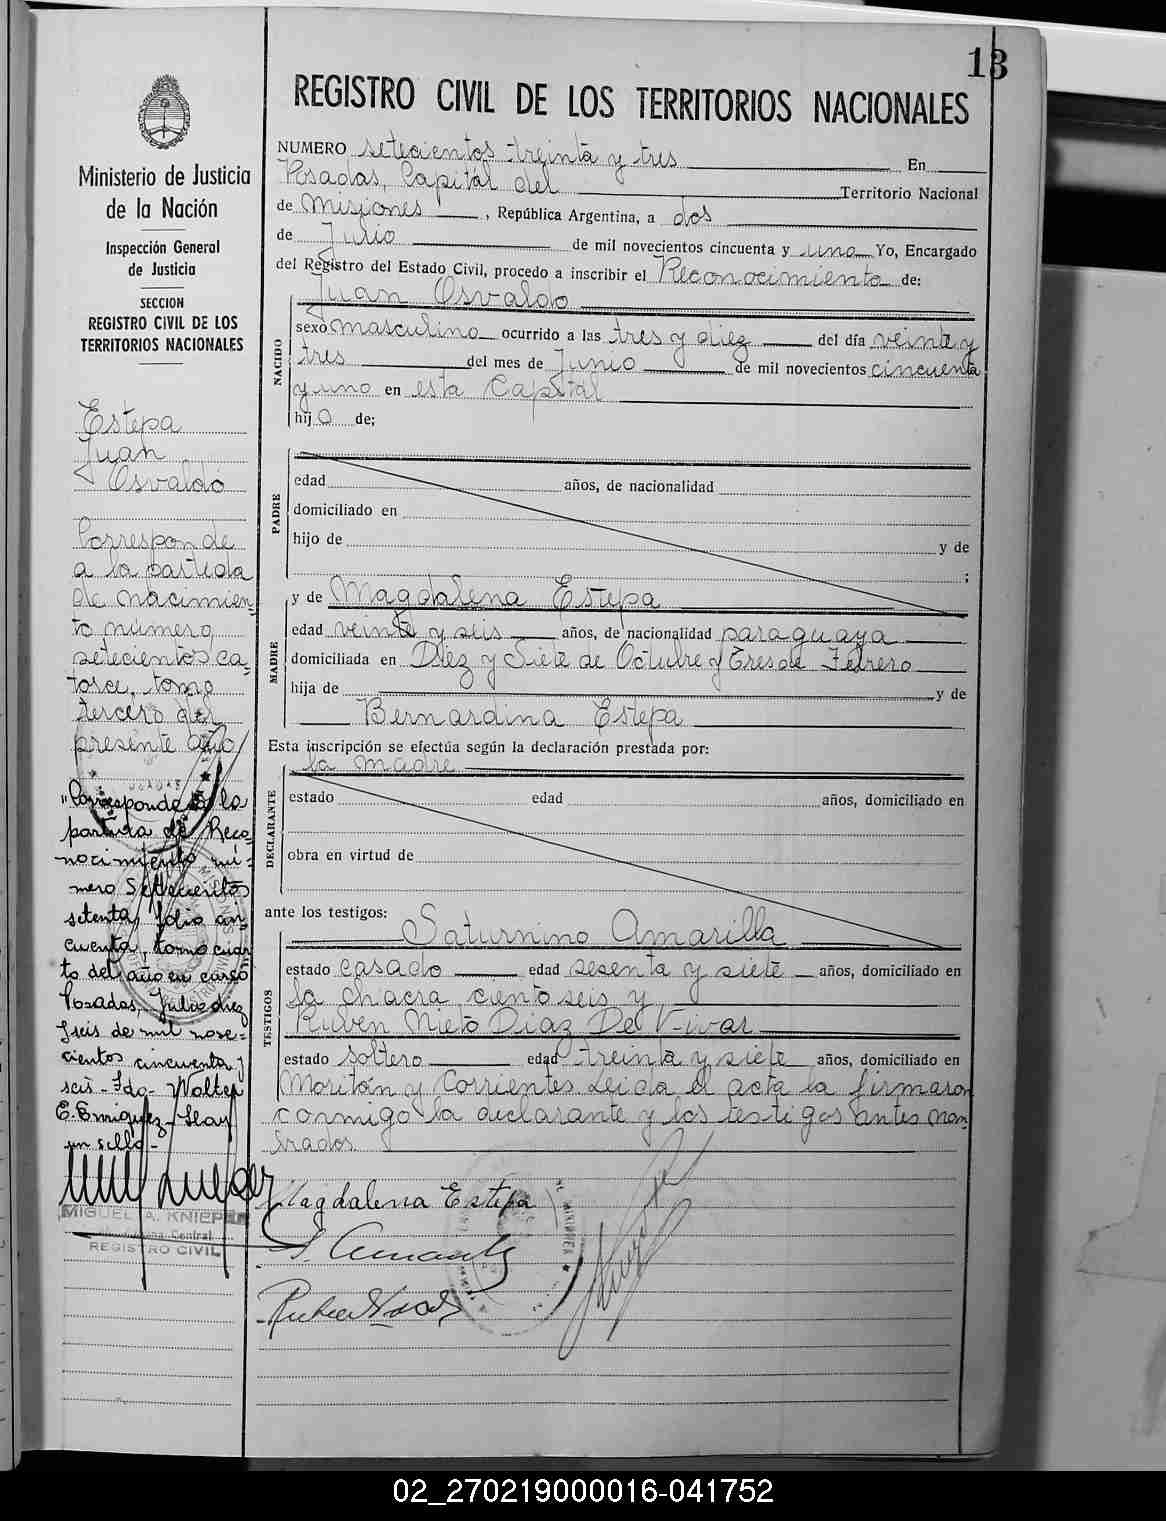 13
REGISTRO CIVIL DE LOS TERRITORIOS NACIONALES
Ministerio de Justicia
de la Nación
Inspección General
de Justicia
SECCION
REGISTRO CIVIL DE LOS
TERRITORIOS NACIONALES
Estepa
Juan
Osvaldo
Corresponde
a la partida
de nacimien-
to número
setecientos ca-
torce, tomo
tercero del
presente año
"Corresponde a la
partida de Reco-
nocimiento nú-
mero Setecientos
setenta, folio cin-
cuenta, tomo cuar-
to del año en curso
Posadas, Julio diez
y seis de mil nove-
cientos cincuenta y
seis - Fdo - Walter
E. Enriquez - Hay
un sello -
MIGUEL A. KNIEPER
Central
REGISTRO CIVIL
NUMERO setecientos treinta y tres En
Posadas, Capital del Territorio Nacional
de Misiones, República Argentina, a dos
de Julio de mil novecientos cincuenta y uno Yo, Encargado
del Registro del Estado Civil, procedo a inscribir el Reconocimiento de:
Juan Osvaldo
NACIDO
sexo masculino ocurrido a las tres y diez del día veinte y
tres del mes de Junio de mil novecientos cincuenta
y uno en esta Capital
hijo de;
PADRE
edad años, de nacionalidad
domiciliado en
hijo de y de
;
MADRE
y de Magdalena Estepa
edad veinte y seis años, de nacionalidad paraguaya
domiciliada en Diez y Siete de Octubre y Tres de Febrero
hija de y de
Bernardina Estepa
Esta inscripción se efectúa según la declaración prestada por:
la madre
DECLARANTE
estado edad años, domiciliado en
obra en virtud de
ante los testigos:
TESTIGOS
Saturnino Amarilla
estado casado edad sesenta y siete años, domiciliado en
la chacra ciento seis y
Ruben Nieto Diaz De Vivar
estado soltero edad treinta y siete años, domiciliado en
Moritán y Corrientes. Leida el acta la firmaron
conmigo la declarante y los testigos antes nom-
brados.
Magdalena Estepa
02_270219000016-041752